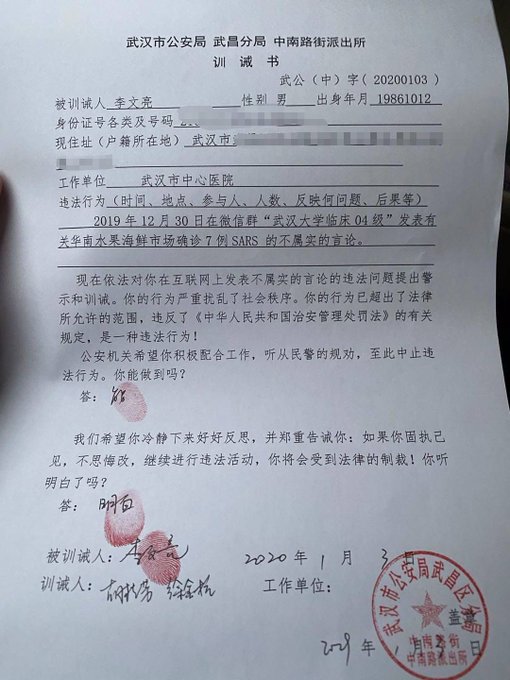 武汉市公安局 武昌分局 中南路街派出所
训 诫 书
武公（中）字（20200103）
被训诫人 李文亮 性别 男 出身年月 19861012
身份证号各类及号码
现住址（户籍所在地） 武汉市
工作单位 武汉市中心医院
违法行为（时间、地点、参与人、人数、反映何问题、后果等）
2019 年 12 月 30 日在微信群“武汉大学临床 04 级”发表有
关华南水果海鲜市场确诊 7 例 SARS 的不属实的言论。
现在依法对你在互联网上发表不属实的言论的违法问题提出警
示和训诫。你的行为严重扰乱了社会秩序。你的行为已超出了法律
所允许的范围，违反了《中华人民共和国治安管理处罚法》的有关
规定，是一种违法行为！
公安机关希望你积极配合工作，听从民警的规劝，至此中止违
法行为。你能做到吗？
答：能
我们希望你冷静下来好好反思，并郑重告诫你：如果你固执己
见，不思悔改，继续进行违法活动，你将会受到法律的制裁！你听
明白了吗？
答：明白
被训诫人：李文亮 2020 年 1 月 3 日
训诫人： 工作单位：
武汉市公安局武昌区分局
盖章
中南路街
中南路派出所
年 1 月 3 日